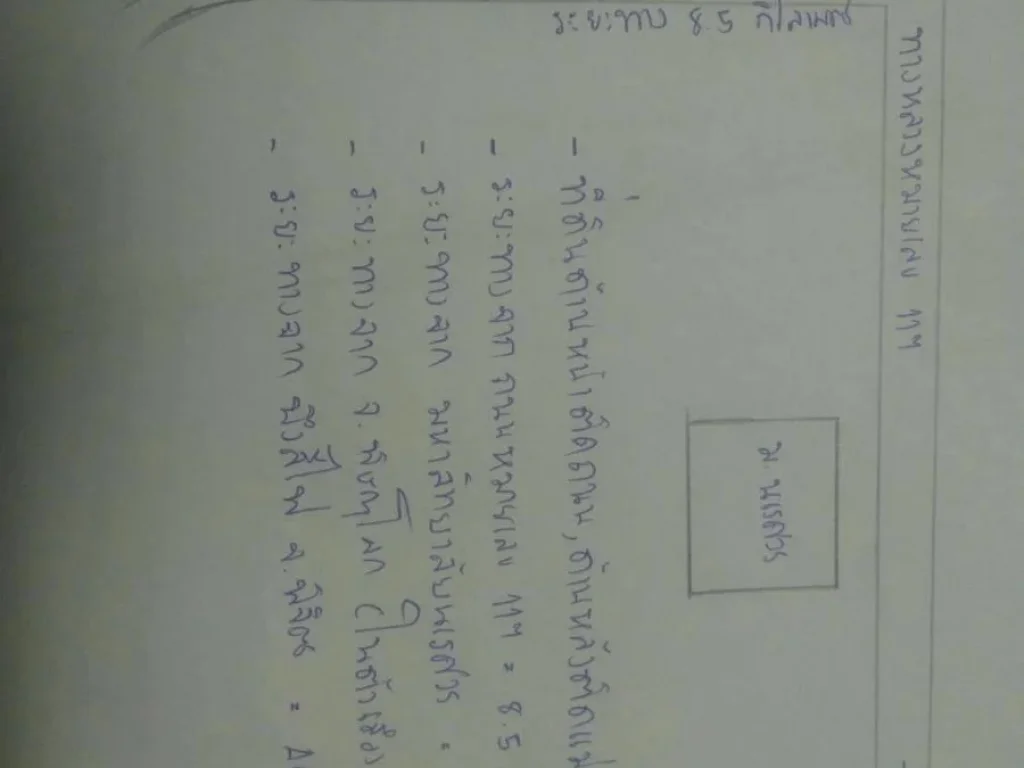 ทางหลวงหมายเลข 117
ระยะทาง 8.5 กิโลเมตร
ม. นเรศวร
- ที่ดินด้านหน้าติดถนน, ด้านหลังติดแม่
- ระยะทางจาก ถนนหมายเลข 117 = 8.5
- ระยะทางจาก มหาวิทยาลัยนเรศวร =
- ระยะทางจาก จ. พิษณุโลก (ในตัวเมือง
- ระยะทางจาก จ.พิจิตร =